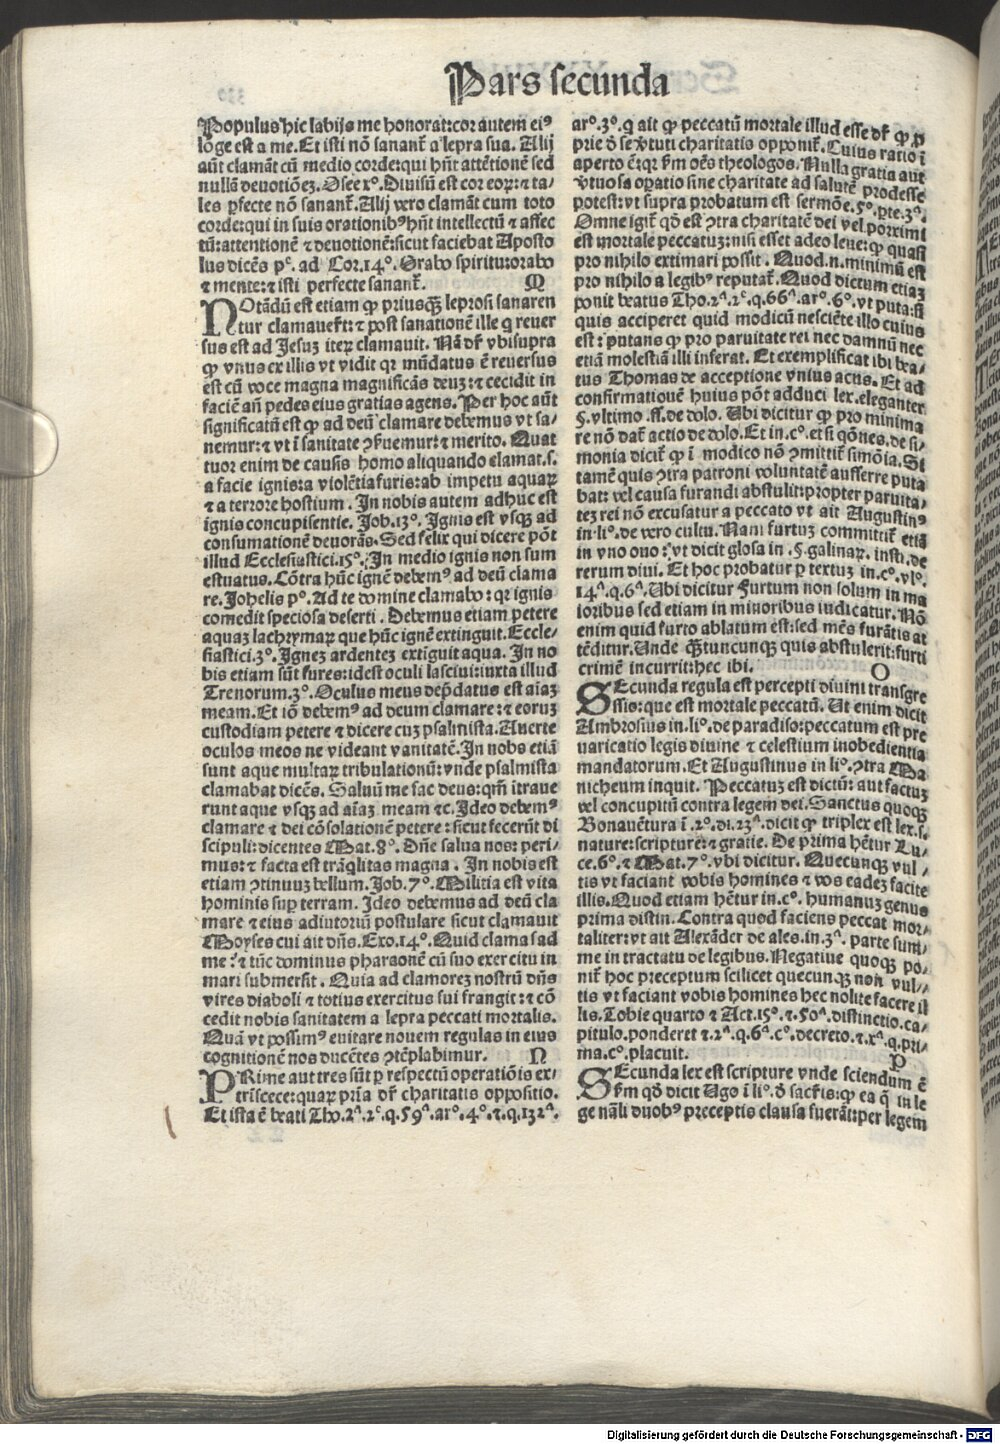 Pars secunda
Populus hic labijs me honorat: cor autem ei⁹
lõge est a me. Et isti nõ sananť a lepra sua. Alij
aũt clamãt cũ medio corde: qui hñt attẽtionẽ sed
nullã deuotiõeꝫ. Osee xº. Diuisũ est cor eoꝝ: ⁊ ta-
les ꝑfecte nõ sananť. Alij vero clamãt cum toto
corde: qui in suis orationib⁹ hñt intellectũ ⁊ affec
tũ: attentionẽ ⁊ deuotionẽ: sicut faciebat Aposto
lus dicẽs pᶜ. ad Cor. 14º. Orabo spiritu: orabo
⁊ mente: ⁊ isti perfecte sananť. M
NOtãdũ est etiam ꝙ priusqȝ leprosi sanaren
tur clamauerũt: ⁊ post sanationẽ ille q reuer
sus est ad Jesuȝ iteꝝ clamauit. Nã dř vbi supra
ꝙ vnus ex illis vt vidit qꝛ mũdatus ẽ reuersus
est cũ voce magna magnificãs deuȝ: ⁊ cecidit in
faciẽ añ pedes eius gratias agens. Per hoc aũt
significatũ est ꝙ ad deũ clamare debemus vt sa-
nemur: ⁊ vt ĩ sanitate ꝯẜuemur: ⁊ merito. Quat
tuor enim de causis homo aliquando clamat. s.
a facie ignis: a violẽtia furis: ab impetu aquaꝝ
⁊ a terrore hostium. In nobis autem adhuc est
ignis concupisentie. Job. 13º. Ignis est vsqȝ ad
consumationẽ deuorãs. Sed felix qui dicere põt
illud Ecclesiastici. 15º. In medio ignis non sum
estuatus. Cõtra hũc ignẽ debem⁹ ad deũ clama
re. Johelis pº. Ad te domine clamabo: qꝛ ignis
comedit speciosa deserti. Debemus etiam petere
aquaȝ lachrymaꝝ que hũc ignẽ extinguit. Eccle-
siastici. 3º. Igneȝ ardenteȝ extĩguit aqua. In no
bis etiam sũt fures: idest oculi lasciui: iuxta illud
Trenorum. 3º. Oculus meus dep̃datus est aĩaȝ
meam. Et iõ debem⁹ ad deum clamare: ⁊ eoruȝ
custodiam petere ⁊ dicere cuȝ psalmista. Auerte
oculos meos ne videant vanitatẽ. In nobs etiã
sunt aque multaꝝ tribulationũ: vnde psalmista
clamabat dicẽs. Saluũ me fac deus: qm̃ ĩtraue
runt aque vsqȝ ad aĩaȝ meam ⁊c. Ideo debem⁹
clamare ⁊ dei cõsolationẽ petere: sicut fecerũt di
scipuli: dicentes Mat. 8º. Dñe salua nos: peri-
mus: ⁊ facta est trãq̃litas magna. In nobis est
etiam ꝯtinuuȝ bellum. Job. 7º. Militia est vita
hominis suꝑ terram. Ideo debemus ad deũ cla
mare ⁊ eius adiutoriũ postulare sicut clamauit
Moyses cui ait dñs. Exo. 14º. Quid clamas ad
me? ⁊ tũc dominus pharaonẽ cũ suo exercitu in
mari submersit. Quia ad clamoreȝ nostrũ dñs
vires diaboli ⁊ totius exercitus sui frangit: ⁊ cõ
cedit nobis sanitatem a lepra peccati mortalis.
Quã vt possim⁹ euitare nouem regulas in eius
cognitionẽ nos ducẽtes ꝯtẽplabimur. N
PRime aut tres sũt ꝑ respectũ operatiõis ex-
trĩsece: quaꝝ pria dř charitatis oppositio.
Et ista ẽ beati Tho. 2ª. 2ᵉ. q. 59ª. arº. 4º. ⁊. q. 132ª.
arº. 3º. q ait ꝙ peccatũ mortale illud esse dř ꝙ ꝓ
prie ð se ꝟtuti charitatis opponiť. Cuius ratio ĩ
aperto ẽ: qꝛ ẜm oẽs theologos. Nulla gratia aut
ꝟtuosa oꝑatio sine charitate ad salutẽ prodesse
potest: vt supra probatum est sermõe. 5º. ꝑte. 3ª.
Omne igiť qð est ꝯtra charitatẽ dei vel porximi
est mortale peccatuȝ: nisi esset adeo leue: ꝙ quasi
pro nihilo extimari possit. Quod. n. minimũ est
pro nihilo a legib⁹ reputať. Quod dictum etiaȝ
ponit beatus Tho. 2ª. 2ᵉ. q. 66ª. arº. 6º. vt puta: si
quis acciperet quid modicũ nesciẽte illo cuius
est: putans ꝙ pro paruitate rei nec damnũ nec
etiã molestiã illi inferat. Et exemplificat ibi bea-
tus Thomas de acceptione vnius acus. Et ad
confirmationẽ huius põt adduci lex. eleganter
§. vltimo. ff. de dolo. Ubi dicitur ꝙ pro minima
re nõ dať actio de dolo. Et in. cº. et si q̃õnes. de si-
monia diciť ꝙ ĩ modico nõ ꝯmittiť simõia. Si
tamẽ quis ꝯtra patroni voluntatẽ aufferre puta
bat: vel causa furandi abstulit: propter paruita-
teȝ rei nõ excusatur a peccato vt ait Augustin⁹
in. liº. de vero cultu. Nam furtuȝ committiť etiã
in vno ouo: vt dicit glosa in. §. galinaꝝ. insti. de
rerum diui. Et hoc probatur ꝑ textuȝ in. cº. vlº.
14ª. q. 6ª. Ubi dicitur Furtum non solum in ma
ioribus sed etiam in minoribus iudicatur. Nõ
enim quid furto ablatum est: sed mẽs furãtis at
tẽditur. Unde qȝ̃tuncunqȝ quis abstulerit: furti
crimẽ incurrit: hec ibi. O
SEcunda regula est percepti diuini transgre
ssio: que est mortale peccatũ. Ut enim dicit
Ambrosius in. liº. de paradiso: peccatum est pre
uaricatio legis diuine ⁊ celestium inobedientia
mandatorum. Et Augustinus in liº. ꝯtra Ma
nicheum inquit. Peccatuȝ est dictũ: aut factuȝ
vel concupitũ contra legem dei. Sanctus quoqȝ
Bonauẽtura ĩ. 2º. di. 23ª. dicit ꝙ triplex est lex. s.
nature: scripture: ⁊ gratie. De prima hẽtur Lu-
ce. 6º. ⁊ Mat. 7º. vbi dicitur. Quecunqȝ vul-
tis vt faciant vobis homines ⁊ vos eadeȝ facite
illis. Quod etiam hẽtur in. cº. humanuȝ genus
prima distin. Contra quod faciens peccat mor-
taliter: vt ait Alexãder de ales. in. 3ª. parte sum-
me in tractatu de legibus. Negatiue quoqȝ po-
niť hoc preceptum scilicet quecunqȝ non vul-
tis vt faciant vobis homines hec nolite facere il
lis. Tobie quarto ⁊ Act. 15º. ⁊. 50ª. distinctio. ca-
pitulo. ponderet ⁊. 2ª. q. 6ª. cº. decreto. ⁊. xª. q. pri-
ma. cº. placuit. P
SEcunda lex est scripture vnde sciendum ẽ
ẜm qð dicit Ugo ĩ liº. ð sacr̃is: ꝙ ea q̃ in le
ge nãli duob⁹ preceptis clausa fuerãt: per legem
Digitalisierung gefördert durch die Deutsche Forschungsgemeinschaft - DFG